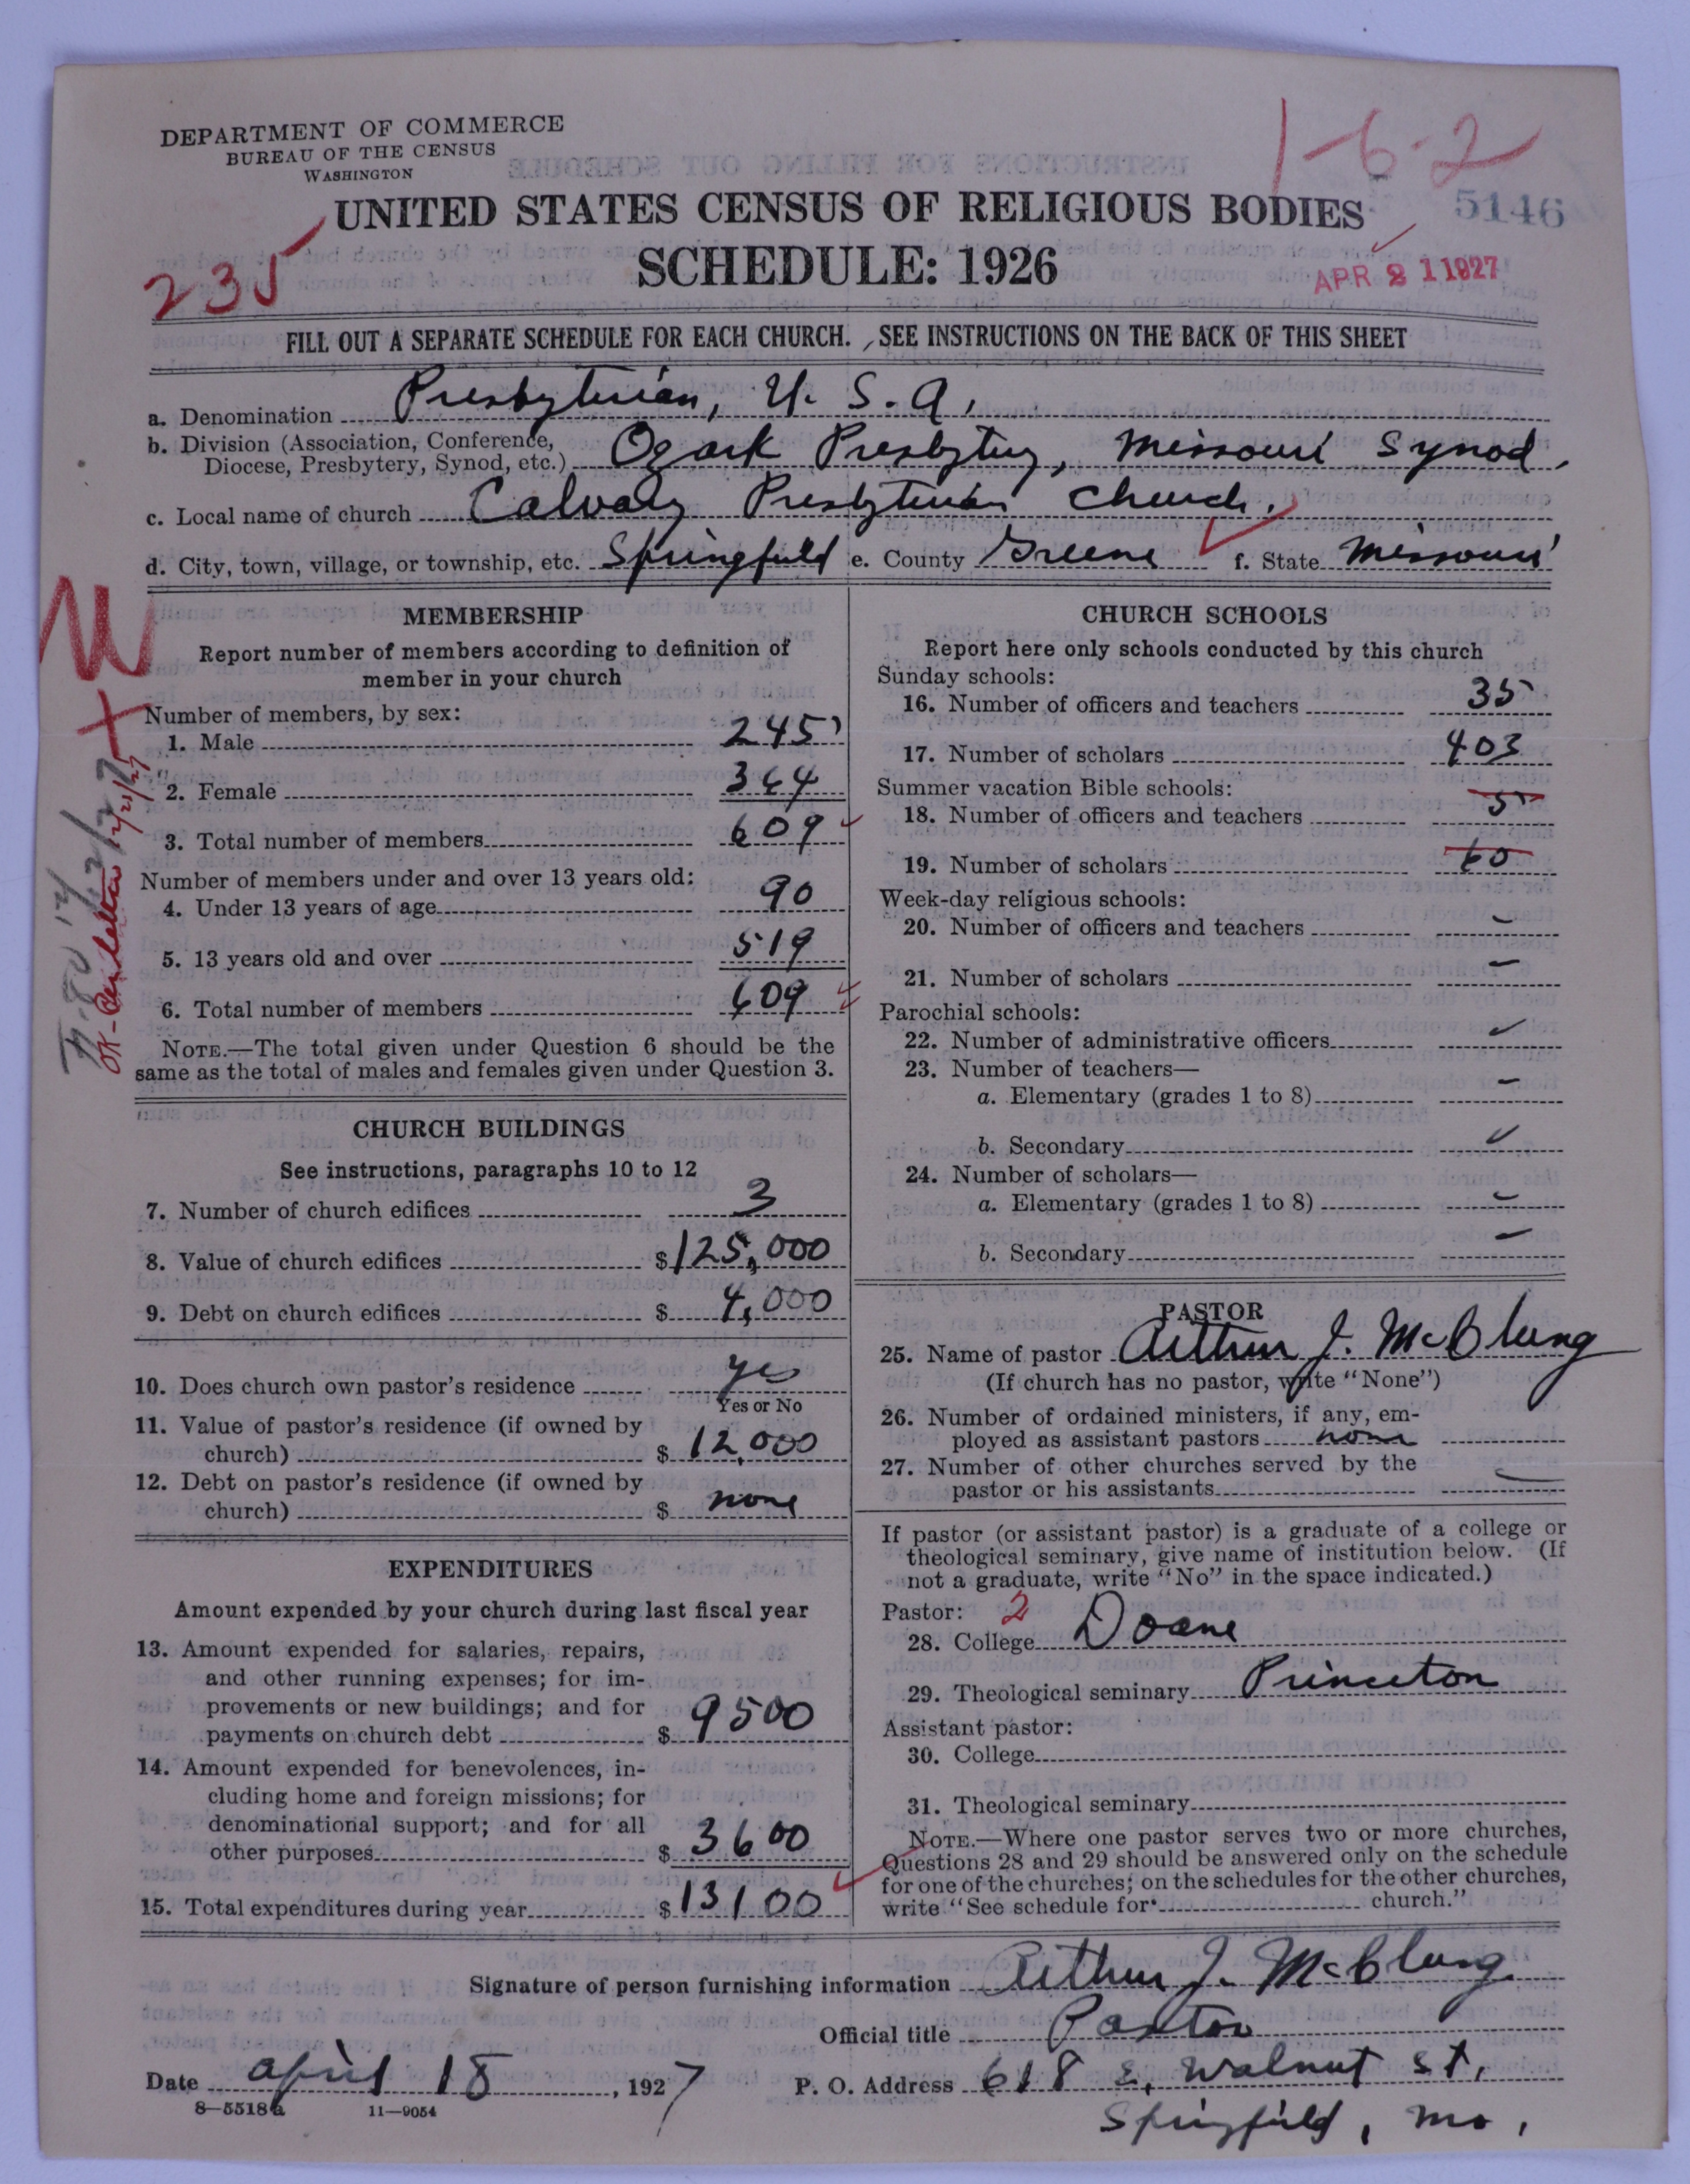 DEPARTMENT OF COMMERCE
BUREAU OF THE CENSUS
WASHINGTON
1-6-2
UNITED STATES CENSUS OF RELIGIOUS BODIES
5146
SCHEDULE: 1926
235
APR 21 1927
FILL OUT A SEPARATE SCHEDULE FOR EACH CHURCH. SEE INSTRUCTIONS ON THE BACK OF THIS SHEET
a. Denomination Presbyterian, U. S. A,
b. Division (Association, Conference,
Diocese, Presbytery, Synod, etc.) Ozark Presbytery, Missouri Synod,
c. Local name of church Calvary Presbyterian Church.
d. City, town, village, or township, etc. Springfield e. County Greene f. State Missouri
MEMBERSHIP
Report number of members according to definition of
member in your church
Number of members, by sex:
1. Male 245
2. Female 364
3. Total number of members 609
Number of members under and over 13 years old:
4. Under 13 years of age 90
5. 13 years old and over 519
6. Total number of members 609
NOTE.—The total given under Question 6 should be the
same as the total of males and females given under Question 3.
CHURCH BUILDINGS
See instructions, paragraphs 10 to 12
7. Number of church edifices 3
8. Value of church edifices $125,000
9. Debt on church edifices $4,000
10. Does church own pastor's residence yes
Yes or No
11. Value of pastor's residence (if owned by
church) $12,000
12. Debt on pastor's residence (if owned by
church) $none
EXPENDITURES
Amount expended by your church during last fiscal year
13. Amount expended for salaries, repairs,
and other running expenses; for im-
provements or new buildings; and for
payments on church debt $9500
14. Amount expended for benevolences, in-
cluding home and foreign missions; for
denominational support; and for all
other purposes $3600
15. Total expenditures during year $13100
CHURCH SCHOOLS
Report here only schools conducted by this church
Sunday schools:
16. Number of officers and teachers 35
17. Number of scholars 403
Summer vacation Bible schools:
18. Number of officers and teachers 5
19. Number of scholars 60
Week-day religious schools:
20. Number of officers and teachers –
21. Number of scholars –
Parochial schools:
22. Number of administrative officers –
23. Number of teachers—
a. Elementary (grades 1 to 8) –
b. Secondary –
24. Number of scholars—
a. Elementary (grades 1 to 8) –
b. Secondary –
PASTOR
25. Name of pastor Arthur J. McClung
(If church has no pastor, write "None")
26. Number of ordained ministers, if any, em-
ployed as assistant pastors none
27. Number of other churches served by the
pastor or his assistants –
If pastor (or assistant pastor) is a graduate of a college or
theological seminary, give name of institution below. (If
not a graduate, write "No" in the space indicated.)
Pastor: 2
28. College Doane
29. Theological seminary Princeton
Assistant pastor:
30. College
31. Theological seminary
NOTE.—Where one pastor serves two or more churches,
Questions 28 and 29 should be answered only on the schedule
for one of the churches; on the schedules for the other churches,
write "See schedule for church."
Signature of person furnishing information Arthur J. McClung
Official title Pastor
Date April 18, 1927
P. O. Address 618 E. Walnut St,
Springfield, Mo,
8—5518a 11—9054